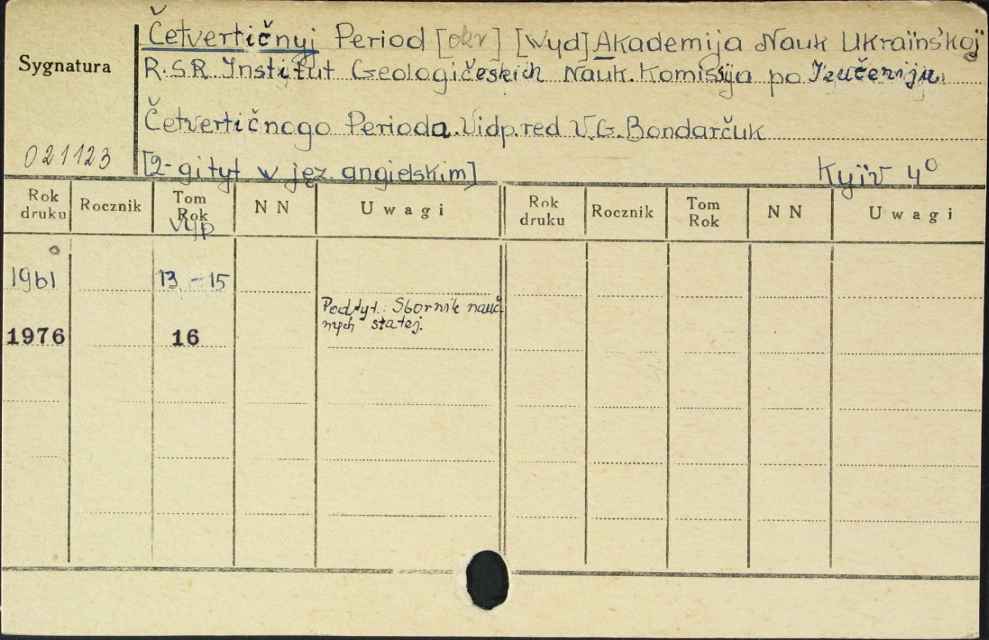 Četvertičnyj Period [okr] [Wyd] Akademija Nauk Ukraïnśkoj
Sygnatura
R.S.R Institut Geologičeskich Nauk. Komisija po Izučeniju
Četvertičnogo Perioda. Vidp. red V.G. Bondarčuk
021123
[2-gi tyt w jęz angielskim] Kyïv 4°
Rok druku Rocznik Tom Rok Wyp NN Uwagi Rok druku Rocznik Tom Rok NN Uwagi
1961 13 - 15
Podtyt.: Sbornik nauč
nych statej.
1976 16